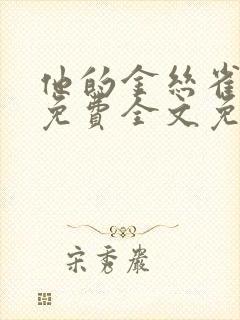 他的金丝雀
免費全文免
宋秀嚴